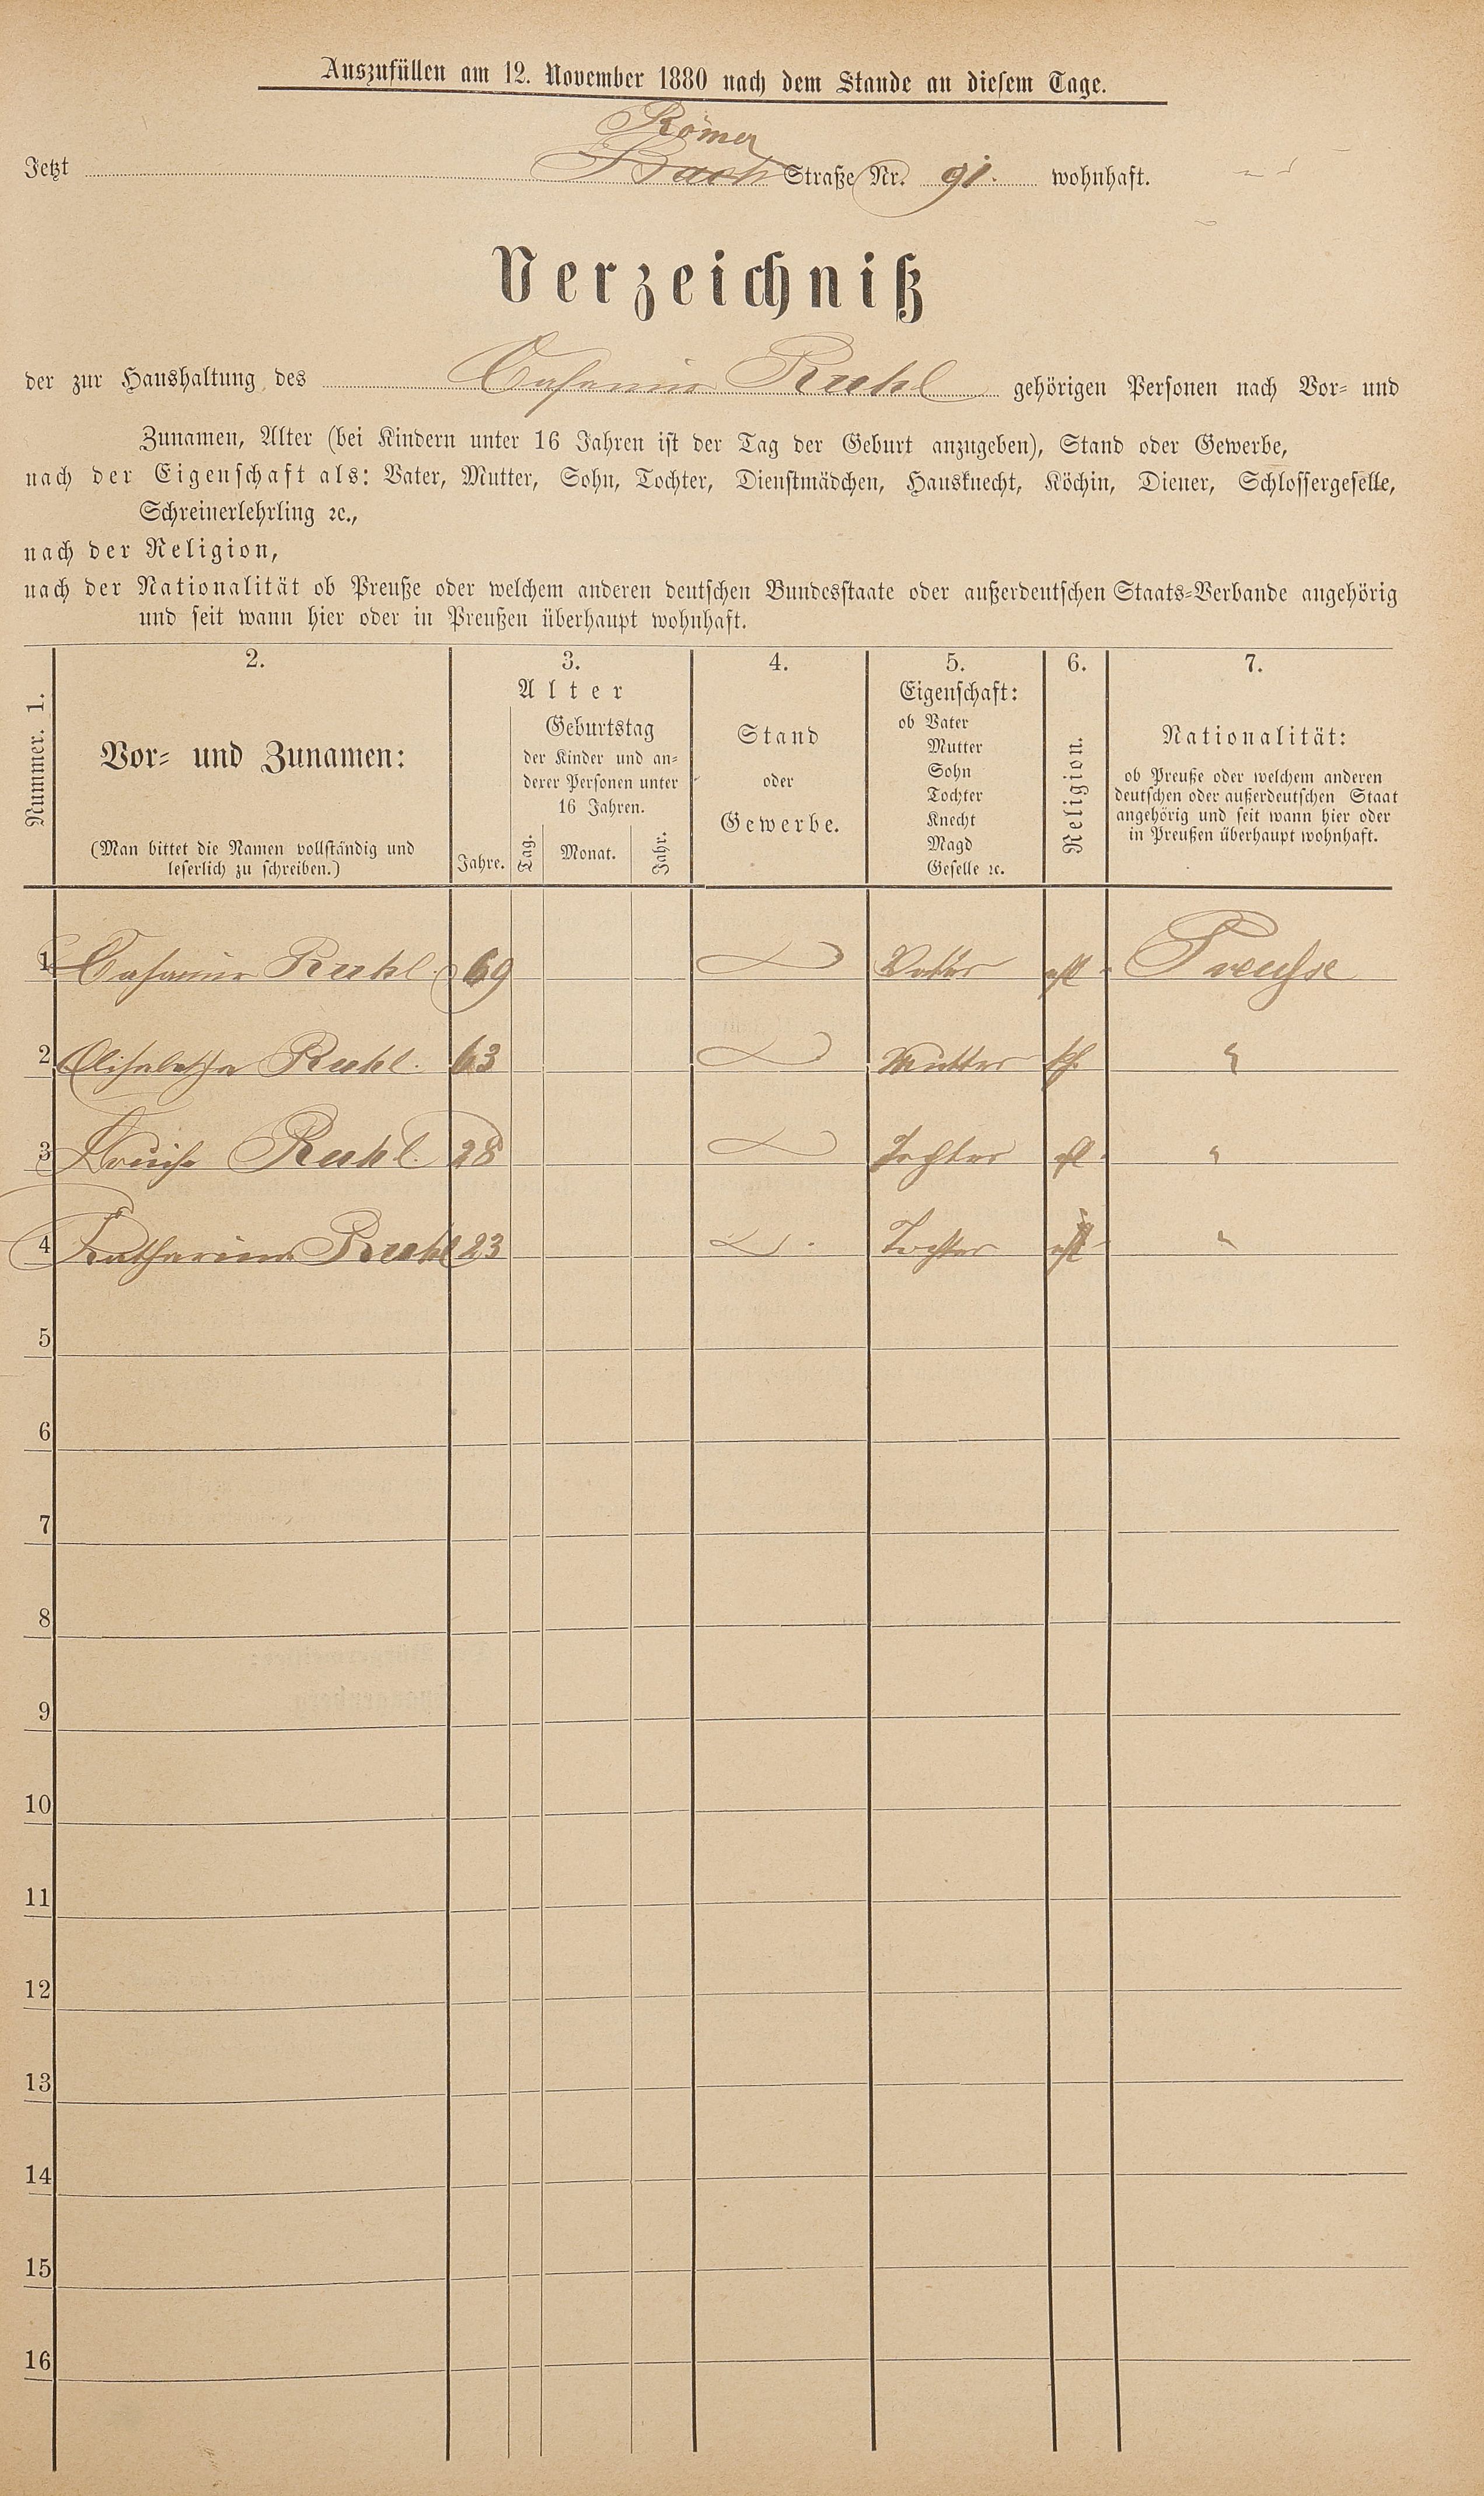 Auszufüllen am 12. November 1880 nach dem Stande an diesem Tage.
Römer
Jetzt Bach Straße Nr. 91. wohnhaft.
Verzeichniß
der zur Haushaltung des Ruhl gehörigen Personen nach Vor- und
Zunamen, Alter (bei Kindern unter 16 Jahren ist der Tag der Geburt anzugeben), Stand oder Gewerbe,
nach der Eigenschaft als: Vater, Mutter, Sohn, Tochter, Dienstmädchen, Hausknecht, Köchin, Diener, Schlossergeselle,
Schreinerlehrling ꝛc.,
nach der Religion,
nach der Nationalität ob Preuße oder welchem anderen deutschen Bundesstaate oder außerdeutschen Staats-Verbande angehörig
und seit wann hier oder in Preußen überhaupt wohnhaft.
Nummer. 1.
2.
Vor- und Zunamen:
(Man bittet die Namen vollständig und
leserlich zu schreiben.)
3.
Alter
Jahre.
Geburtstag
der Kinder und an-
derer Personen unter
16 Jahren.
Tag. Monat. Jahr.
4.
Stand
oder
Gewerbe.
5.
Eigenschaft:
ob Vater
Mutter
Sohn
Tochter
Knecht
Magd
Geselle ꝛc.
6.
Religion.
7.
Nationalität:
ob Preuße oder welchem anderen
deutschen oder außerdeutschen Staat
angehörig und seit wann hier oder
in Preußen überhaupt wohnhaft.
1 Ruhl 69 Vater Preusse
2 Elisabetha Ruhl. 63 Mutter "
3 Louise Ruhl. 28 Tochter "
4 Katharina Ruhl 23 Tochter "
5
6
7
8
9
10
11
12
13
14
15
16